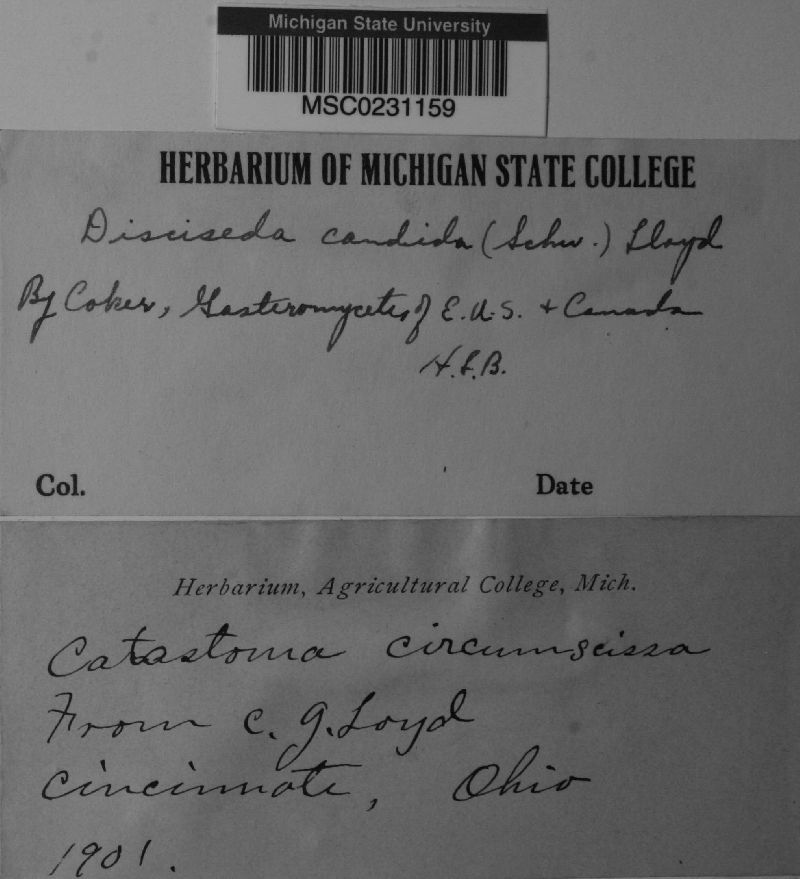 Michigan State University
MSC0231159
HERBARIUM OF MICHIGAN STATE COLLEGE
Disciseda candida (Schw.) Lloyd
By Coker, Gasteromycetes of E.U.S. + Canada
H.S.B.
Col. Date
Herbarium, Agricultural College, Mich.
Catastoma circumscissa
From C. G. Loyd
Cincinnate, Ohio
1901.